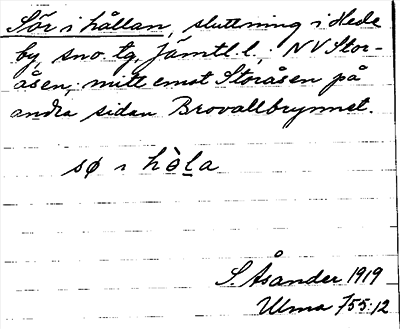 Sör i hållan, sluttning i Hede
by, sno tg. Jämtl. l., NV Stor-
åsen, mitt emot Storåsen på
andra sidan Brovallbrynnet.
sø i hòla
S. Åsander 1919
Ulma 755:12